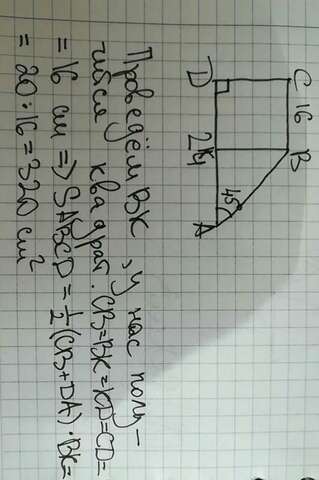 C 16 B
D 24 A
K
45°
Проведём BK, у нас полу-
чился квадрат. CB=BK=KD=CD=
=16 см => SABCD=½(CB+DA)·BK=
=20:16=320 см²